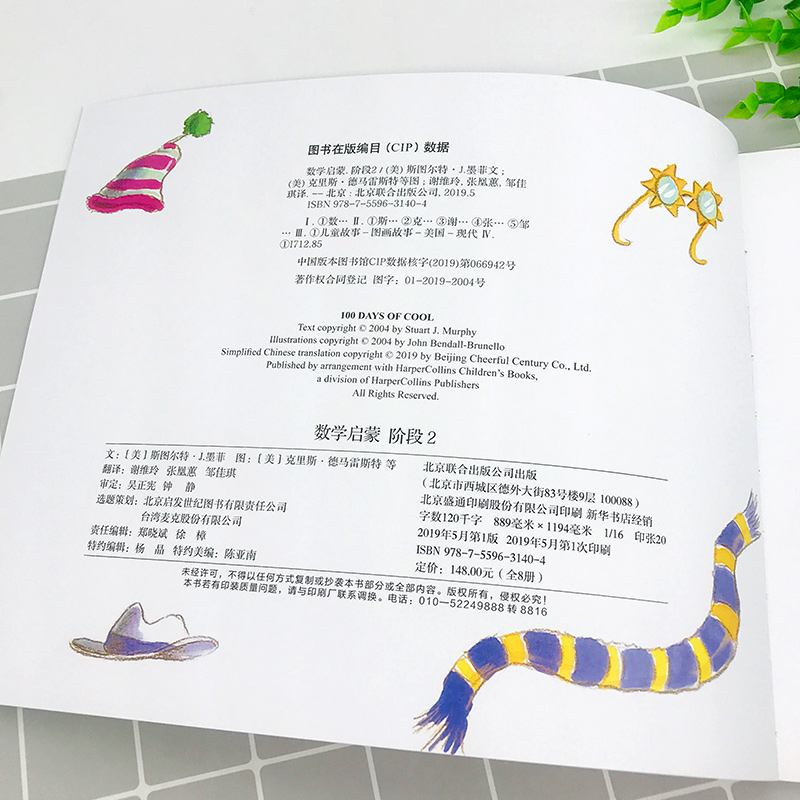 图书在版编目（CIP）数据
数学启蒙. 阶段2 /（美）斯图尔特·J.墨菲文；
（美）克里斯·德马雷斯特等图；谢维玲，张凰蕙，邹佳
琪译. -- 北京：北京联合出版公司，2019.5
ISBN 978-7-5596-3140-4
Ⅰ. ①数… Ⅱ. ①斯… ②克… ③谢… ④张… ⑤邹
… Ⅲ. ①儿童故事－图画故事－美国－现代 Ⅳ.
①I712.85
中国版本图书馆CIP数据核字(2019)第066942号
著作权合同登记 图字：01-2019-2004号
100 DAYS OF COOL
Text copyright © 2004 by Stuart J. Murphy
Illustrations copyright © 2004 by John Bendall-Brunello
Simplified Chinese translation copyright © 2019 by Beijing Cheerful Century Co., Ltd.
Published by arrangement with HarperCollins Children's Books,
a division of HarperCollins Publishers
All Rights Reserved.
数学启蒙 阶段2
文：[美] 斯图尔特·J.墨菲 图：[美] 克里斯·德马雷斯特 等
翻译：谢维玲 张凰蕙 邹佳琪
审定：吴正宪 钟 静
选题策划：北京启发世纪图书有限责任公司
台湾麦克股份有限公司
责任编辑：郑晓斌 徐 樟
特约编辑：杨 晶 特约美编：陈亚南
北京联合出版公司出版
（北京市西城区德外大街83号楼9层 100088）
北京盛通印刷股份有限公司印刷 新华书店经销
字数120千字 889毫米×1194毫米 1/16 印张20
2019年5月第1版 2019年5月第1次印刷
ISBN 978-7-5596-3140-4
定价：148.00元（全8册）
未经许可，不得以任何方式复制或抄袭本书部分或全部内容。版权所有，侵权必究！
本书若有印装质量问题，请与印刷厂联系调换。电话：010—52249888 转 8816